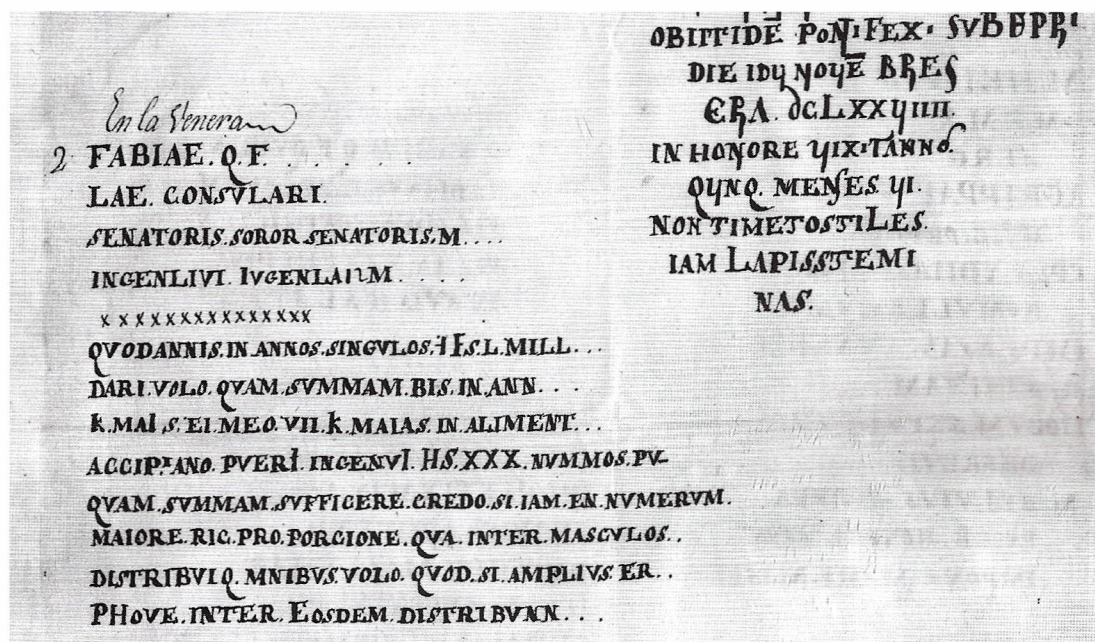 En la Venera
2 FABIAE. Q. F. . . . . .
LAE. CONSVLARI.
SENATORIS. SOROR SENATORIS. M . . . .
INGENLIVI. IVGENLAI M . . . .
x x x x x x x x x x x x x x x
QVODANNIS. IN ANNOS. SINGVLOS. L. MILL . . .
DARI. VOLO. QVAM. SVMMAM. BIS. IN. ANN . . .
K. MAI S. EI. MEO. VII. K. MAIAS. IN ALIMENT . . .
ACCIP. ANO. PVERI. INGENVI. HS. XXX. NVMMOS. PV-
QVAM. SVMMAM. SVFFICERE. CREDO. SI. IAM. EN. NVMERVM.
MAIORE. RIC. PRO. PORCIONE. QVA. INTER. MASCVLOS. .
DISTRIBVI Q. MNIBVS. VOLO. QVOD. SI. AMPLIVS. ER . .
PHOVE. INTER. EOSDEM. DISTRIBVNN . . .
OBIIT IDE PONTIFEX. SVB
DIE IDU NOVE BRES
ERA. DCLXXVIIII.
IN HONORE VIXIT ANNOS.
QVNQ. MENSES VI.
NON TIMET OSTILES.
IAM LAPIS STEMI
NAS.